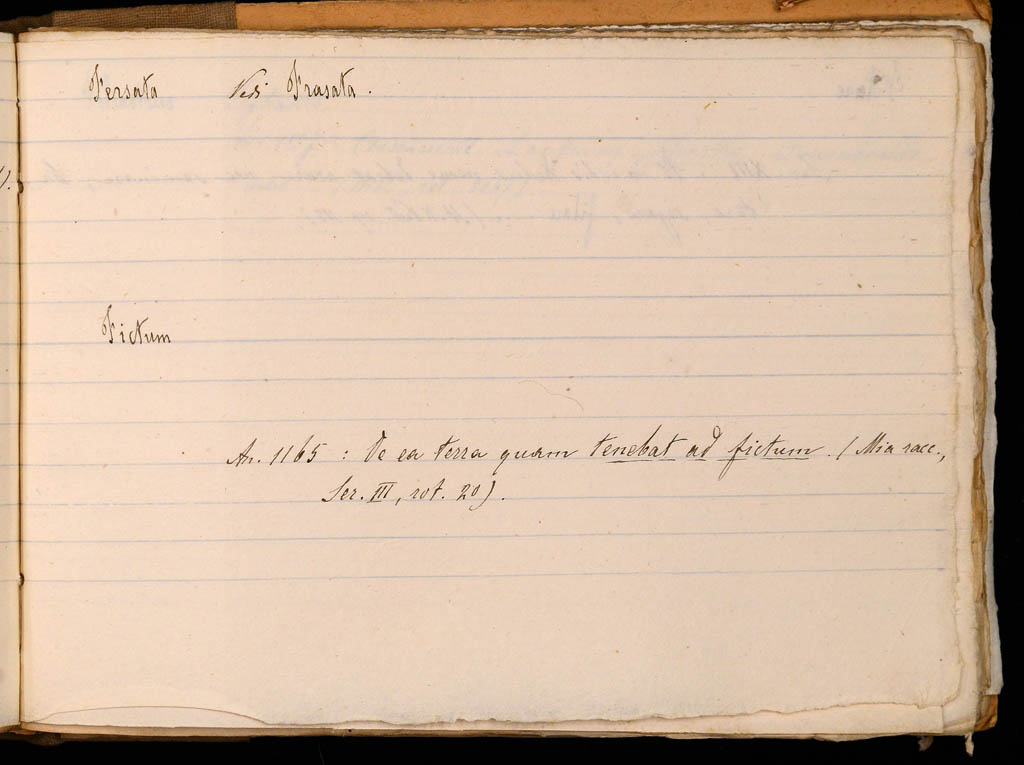 Fersata Vedi Frasata.
Fictum
An. 1165 : De ea terra quam tenebat ad fictum. (Mia racc.,
Ser. III, rot. 20).